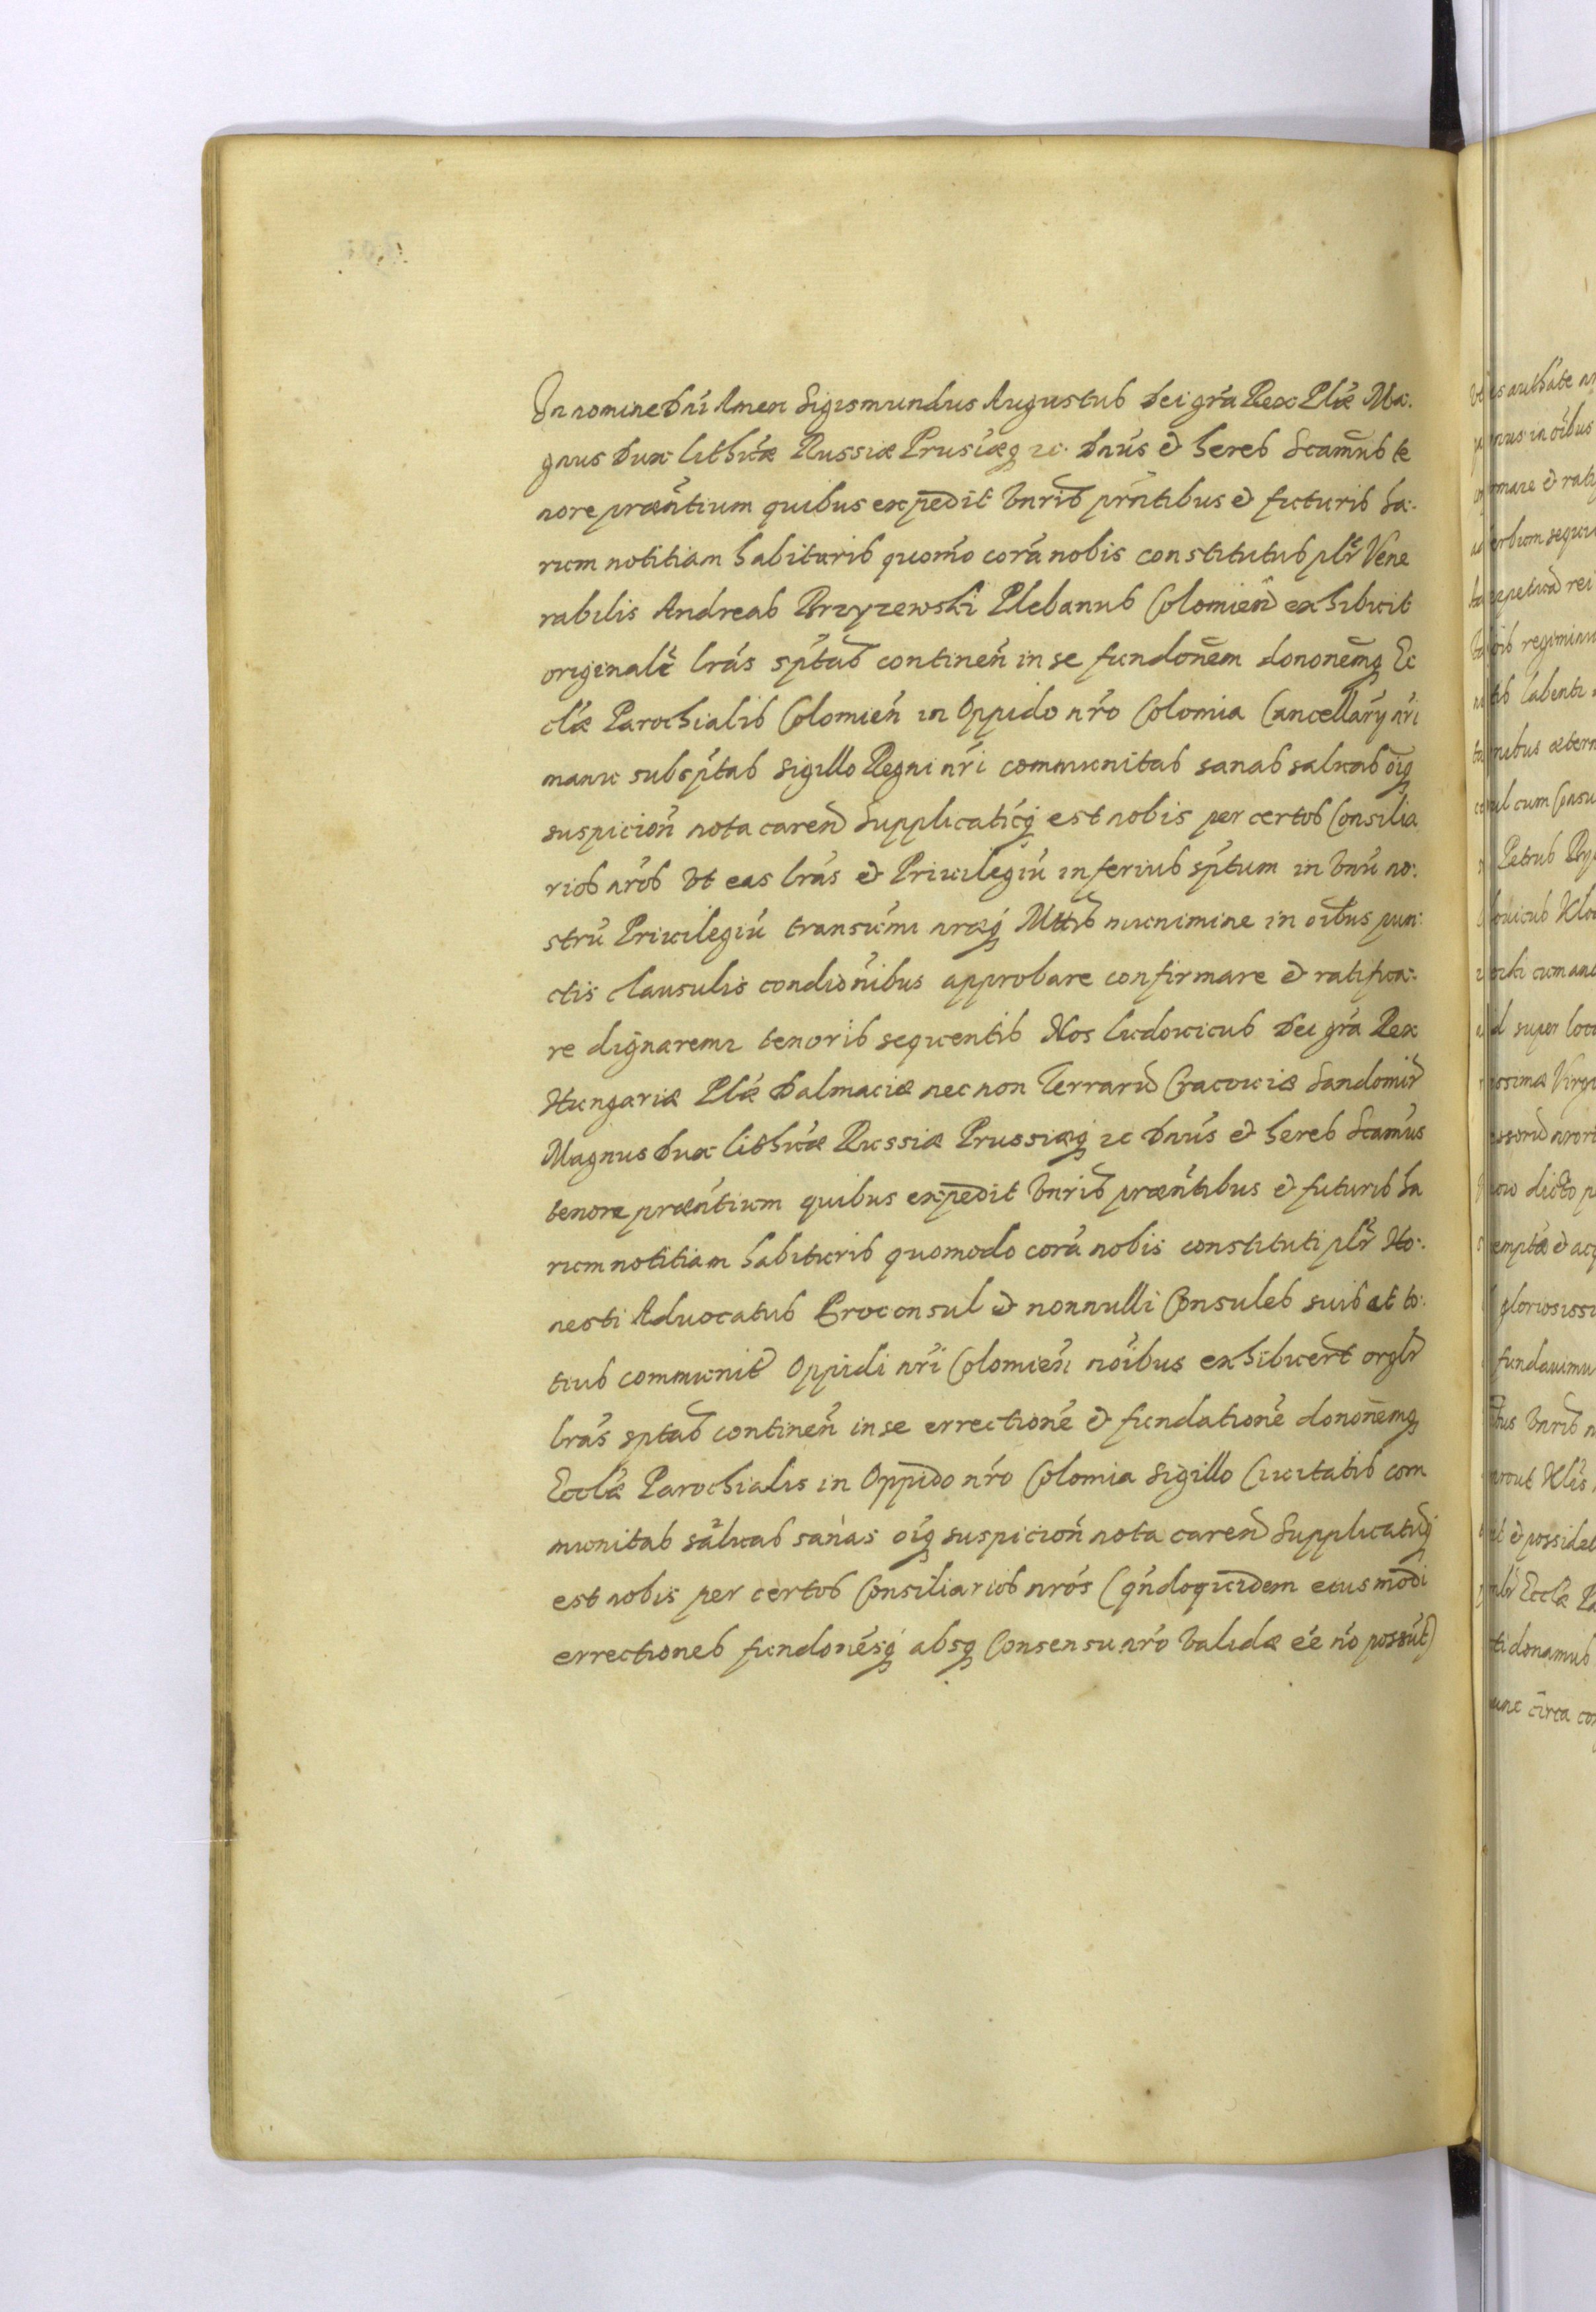 In nomine Dni Amen Sigismundus Augustus Dei gra Rex Pliæ Ma:
gnus Dux Lithuæ Russiæ Prusiæq zc. Dnus & heres Scamus te
nore præntium quibus expedit Unris prntibus & futuris ha:
rum notitiam habituris quomo cora nobis constitutus plr Vene
rabilis Andreas Brzyzewski Plebanus Colomien exhibuit
originale lras sptas continen in se fundonem dononemq Ec
cliæ Parochialis Colomien in Oppido nro Colomia Cancellarij nri
manu subsptas Sigillo Regni nri communitas sanas saluas oiq
suspicion nota caren Supplicatuq est nobis per certos Consilia
rios nros Ut eas lras & Priuilegiu inferius sptum in Unu no:
stru Priuilegiu transumi nræq Mttis munimine in oibus pun:
ctis clausulis condionibus approbare confirmare & ratifica:
re dignaremr tenoris sequentis Nos Ludouicus Dei gra Rex
Hungariæ Pliæ Dalmaciæ nec non Terraru Cracouiæ Sandomir
Magnus Dux Lithuæ Russiæ Prussiæq zc Dnus & heres Scamus
tenore præntium quibus expedit Unris præntibus & futuris ha
rum notitiam habituris quomodo cora nobis constituti plr Ho:
nesti Aduocatus Proconsul & nonnulli Consules suis et to:
tius communit Oppidi nri Colomien noibus exhibuert orglr
lras sptas continen in se errectione & fundatione dononemq
Eccliæ Parochialis in Oppido nro Colomia Sigillo Ciuitatis com
munitas saluas sanas oiq suspicion nota caren Supplicatuq
est nobis per certos Consiliarios nros (qndoquidem eius modi
errectiones fundonesq absq Consensu nro Validæ ee no possut)